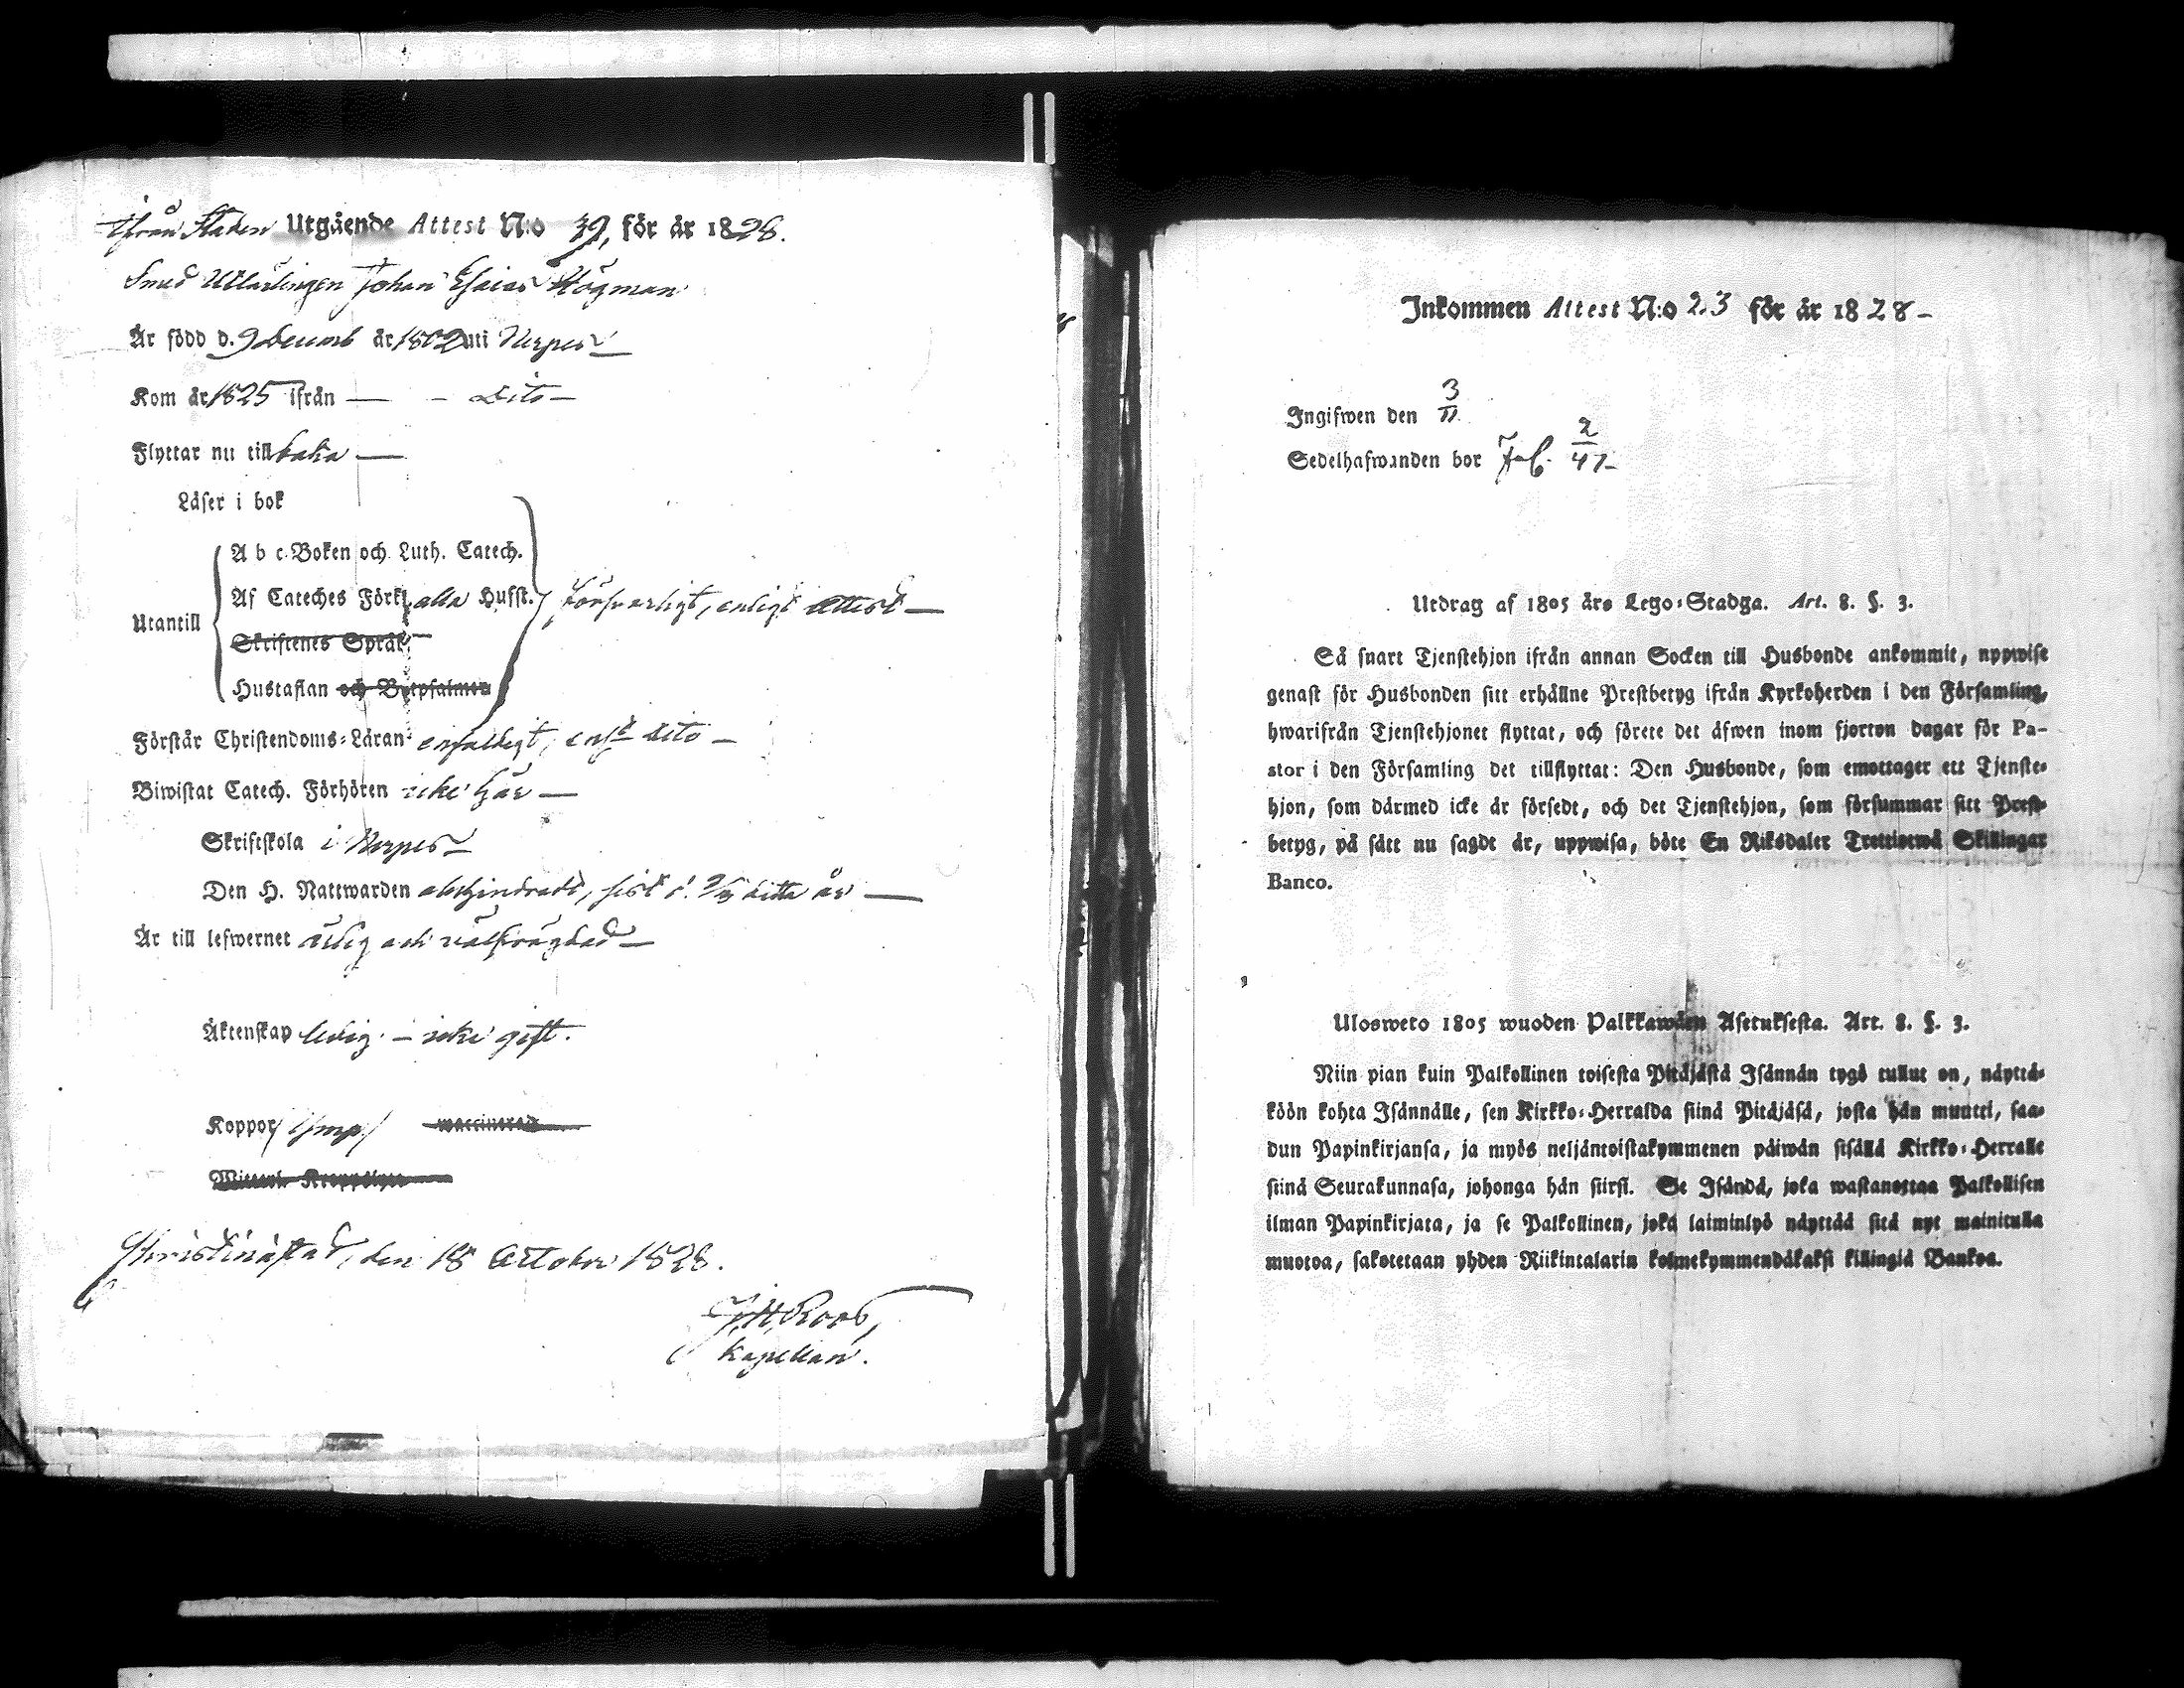 ifrån Staden Utgående Attest N:o 39, för år 1828.
Smed Utlärlingen Johan Esaias Högman
Är född d. 9 Decemb år 1802 uti Nerpes
Kom år 1825 ifrån — - Dito -
Flyttar nu tillbaka —
Läser i bok
A b c-Boken och Luth. Catech.
Utantill Af Cateches Förkl. alla Hufst. försvarligt, enligt attest —
Skriftenes Språk
Hustaflan och Botpsalmer
Förstår Christendoms-Läran enfaldigt, enl dito -
Biwistat Catech. Förhören icke här —
Skriftskola i Nerpes
Den H. Nattwarden obehindradt, sist d. detta år —
Är till lefwernet ärlig och välfrägdad —
Äktenskap ledig - icke gift.
Koppor /ymp/ vaccinerad
Christinæstad, den 18 October 1828.
J. H. Roos,
Kapellan.
Inkommen Attest N:o 23 för år 1828 -
Ingifwen den 3/11.
Sedelhafwanden bor 2/47-
Utdrag af 1805 års Lego-Stadga. Art. 8. §. 3.
Så snart Tjenstehjon ifrån annan Socken till Husbonde ankommit, uppwise
genast för Husbonden sitt erhållne Prestbetyg ifrån Kyrkoherden i den Församling,
hwarifrån Tjenstehjonet flyttat, och förete det äfwen inom fjorton dagar för Pa-
stor i den Församling det tillflyttat: Den Husbonde, som emottager ett Tjenste-
hjon, som därmed icke är försedt, och det Tjenstehjon, som försummar sitt Prest-
betyg, på sätt nu sagdt är, uppwisa, böte En Riksdaler Trettiotwå Skillingar
Banco.
Ulosweto 1805 wuoden Palkkawäen Asetuksesta. Art. 8. §. 3.
Niin pian kuin Palkollinen toisesta Pitäjästä Isännän tygö tullut on, näyttä-
köön kohta Isännälle, sen Kirkko-Herralda siinä Pitäjäsä, josta hän muutti, saa-
dun Papinkirjansa, ja myös neljäntoistakymmenen päiwän sisällä Kirkko-Herralle
siinä Seurakunnasa, johonga hän siirsi. Se Isändä, joka wastanottaa Palkollisen
ilman Papinkirjata, ja se Palkollinen, joka laiminlyö näyttää sitä nyt mainitulla
muotoa, sakotetaan yhden Riikintalarin kolmekymmendäkaksi killingiä Bankoa.